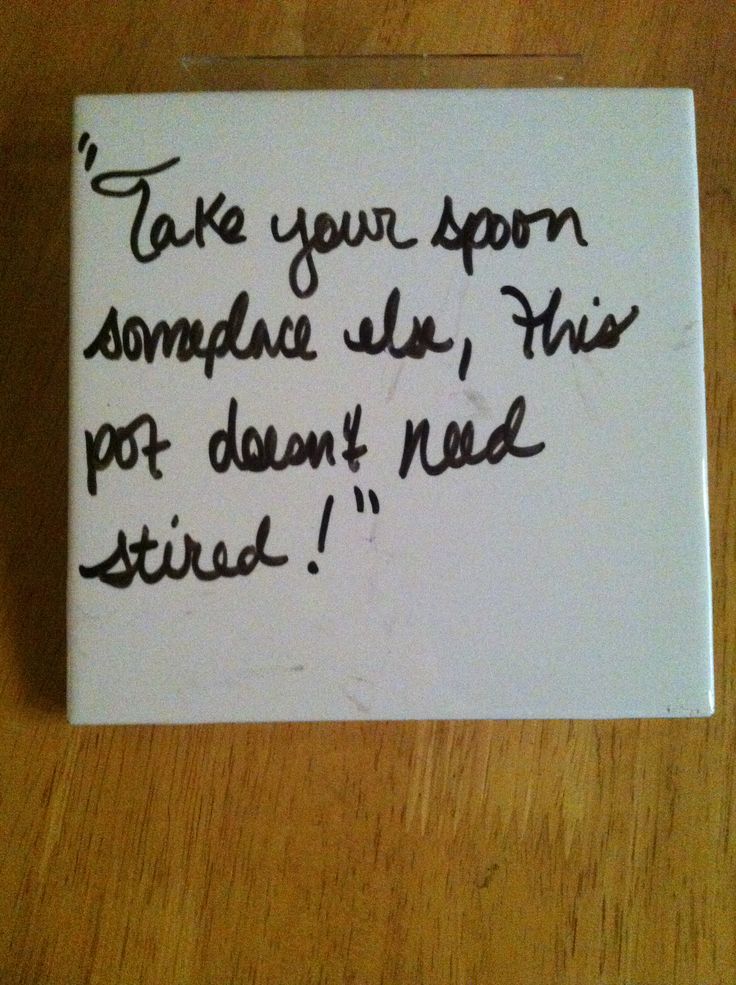 "Take your spoon
someplace else, this
pot doesn't need
stired!"